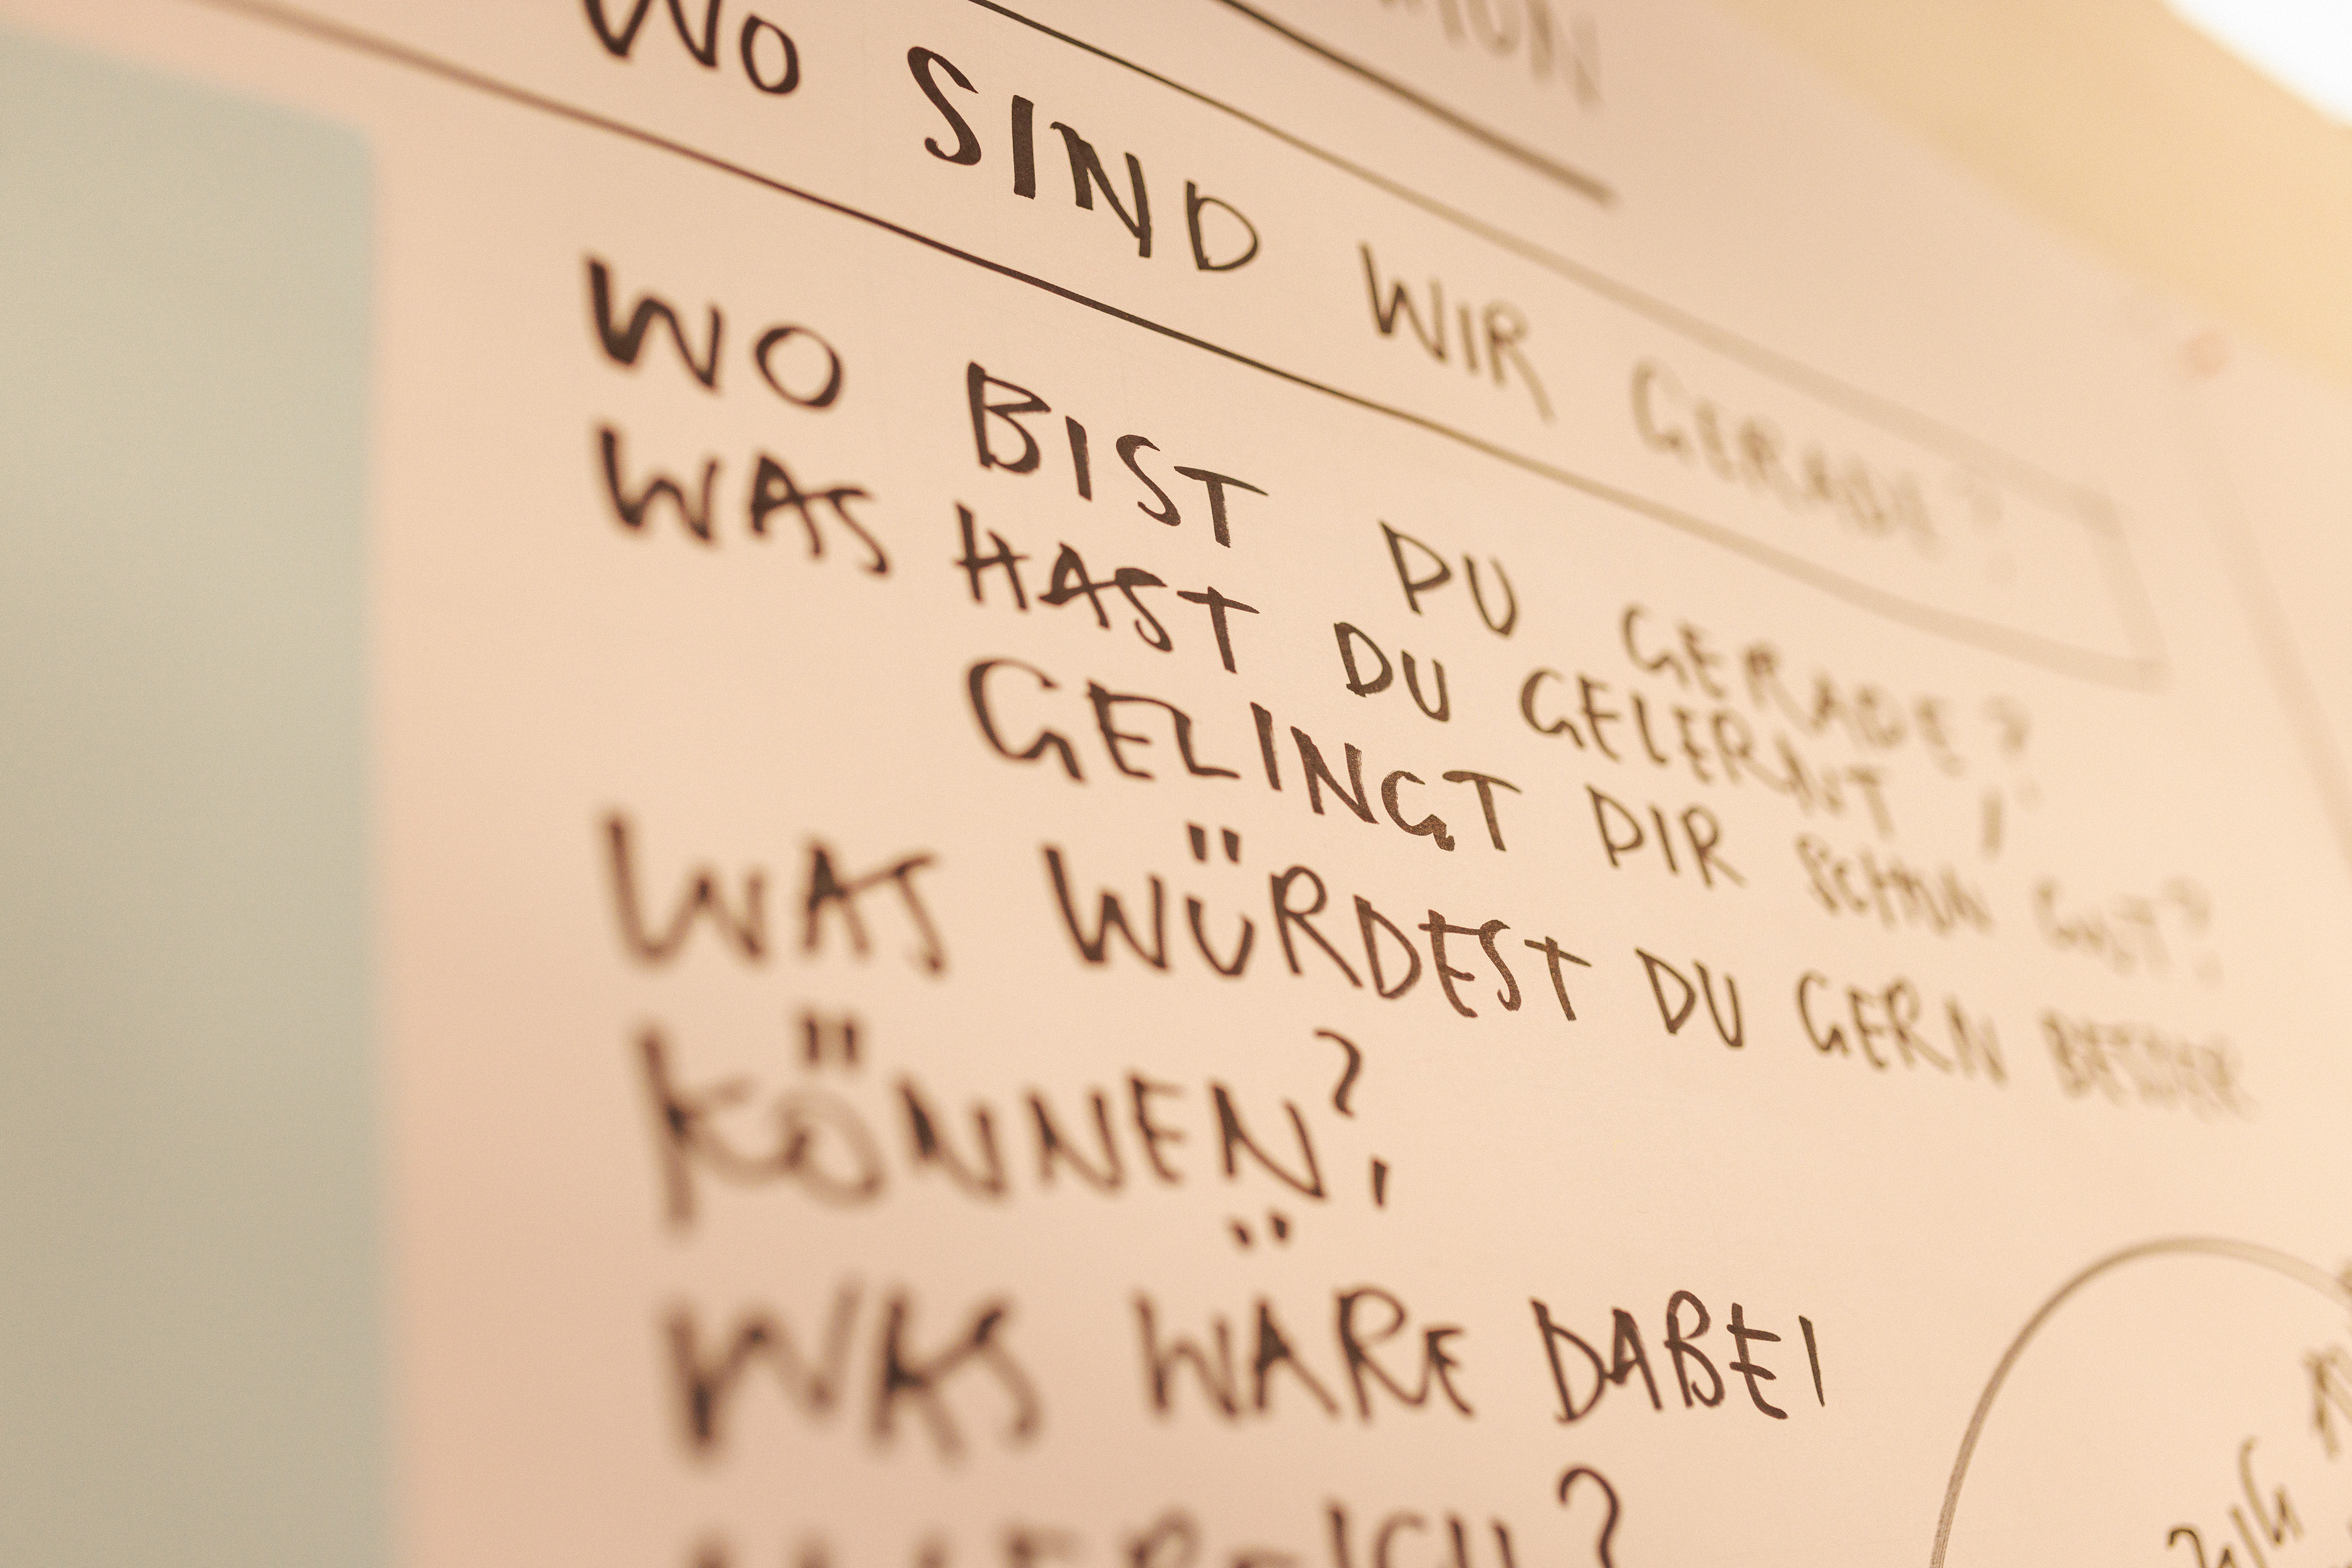 WO SIND WIR GERADE?
WO BIST DU GERADE?
WAS HAST DU GELERNT,
GELINGT DIR SCHON GUT?
WAS WÜRDEST DU GERN BESSER
KÖNNEN?
WAS WÄRE DABEI